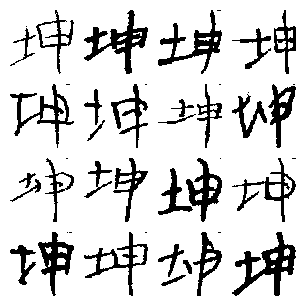 坤坤坤坤
坤坤坤坤
坤坤坤坤
坤坤坤坤